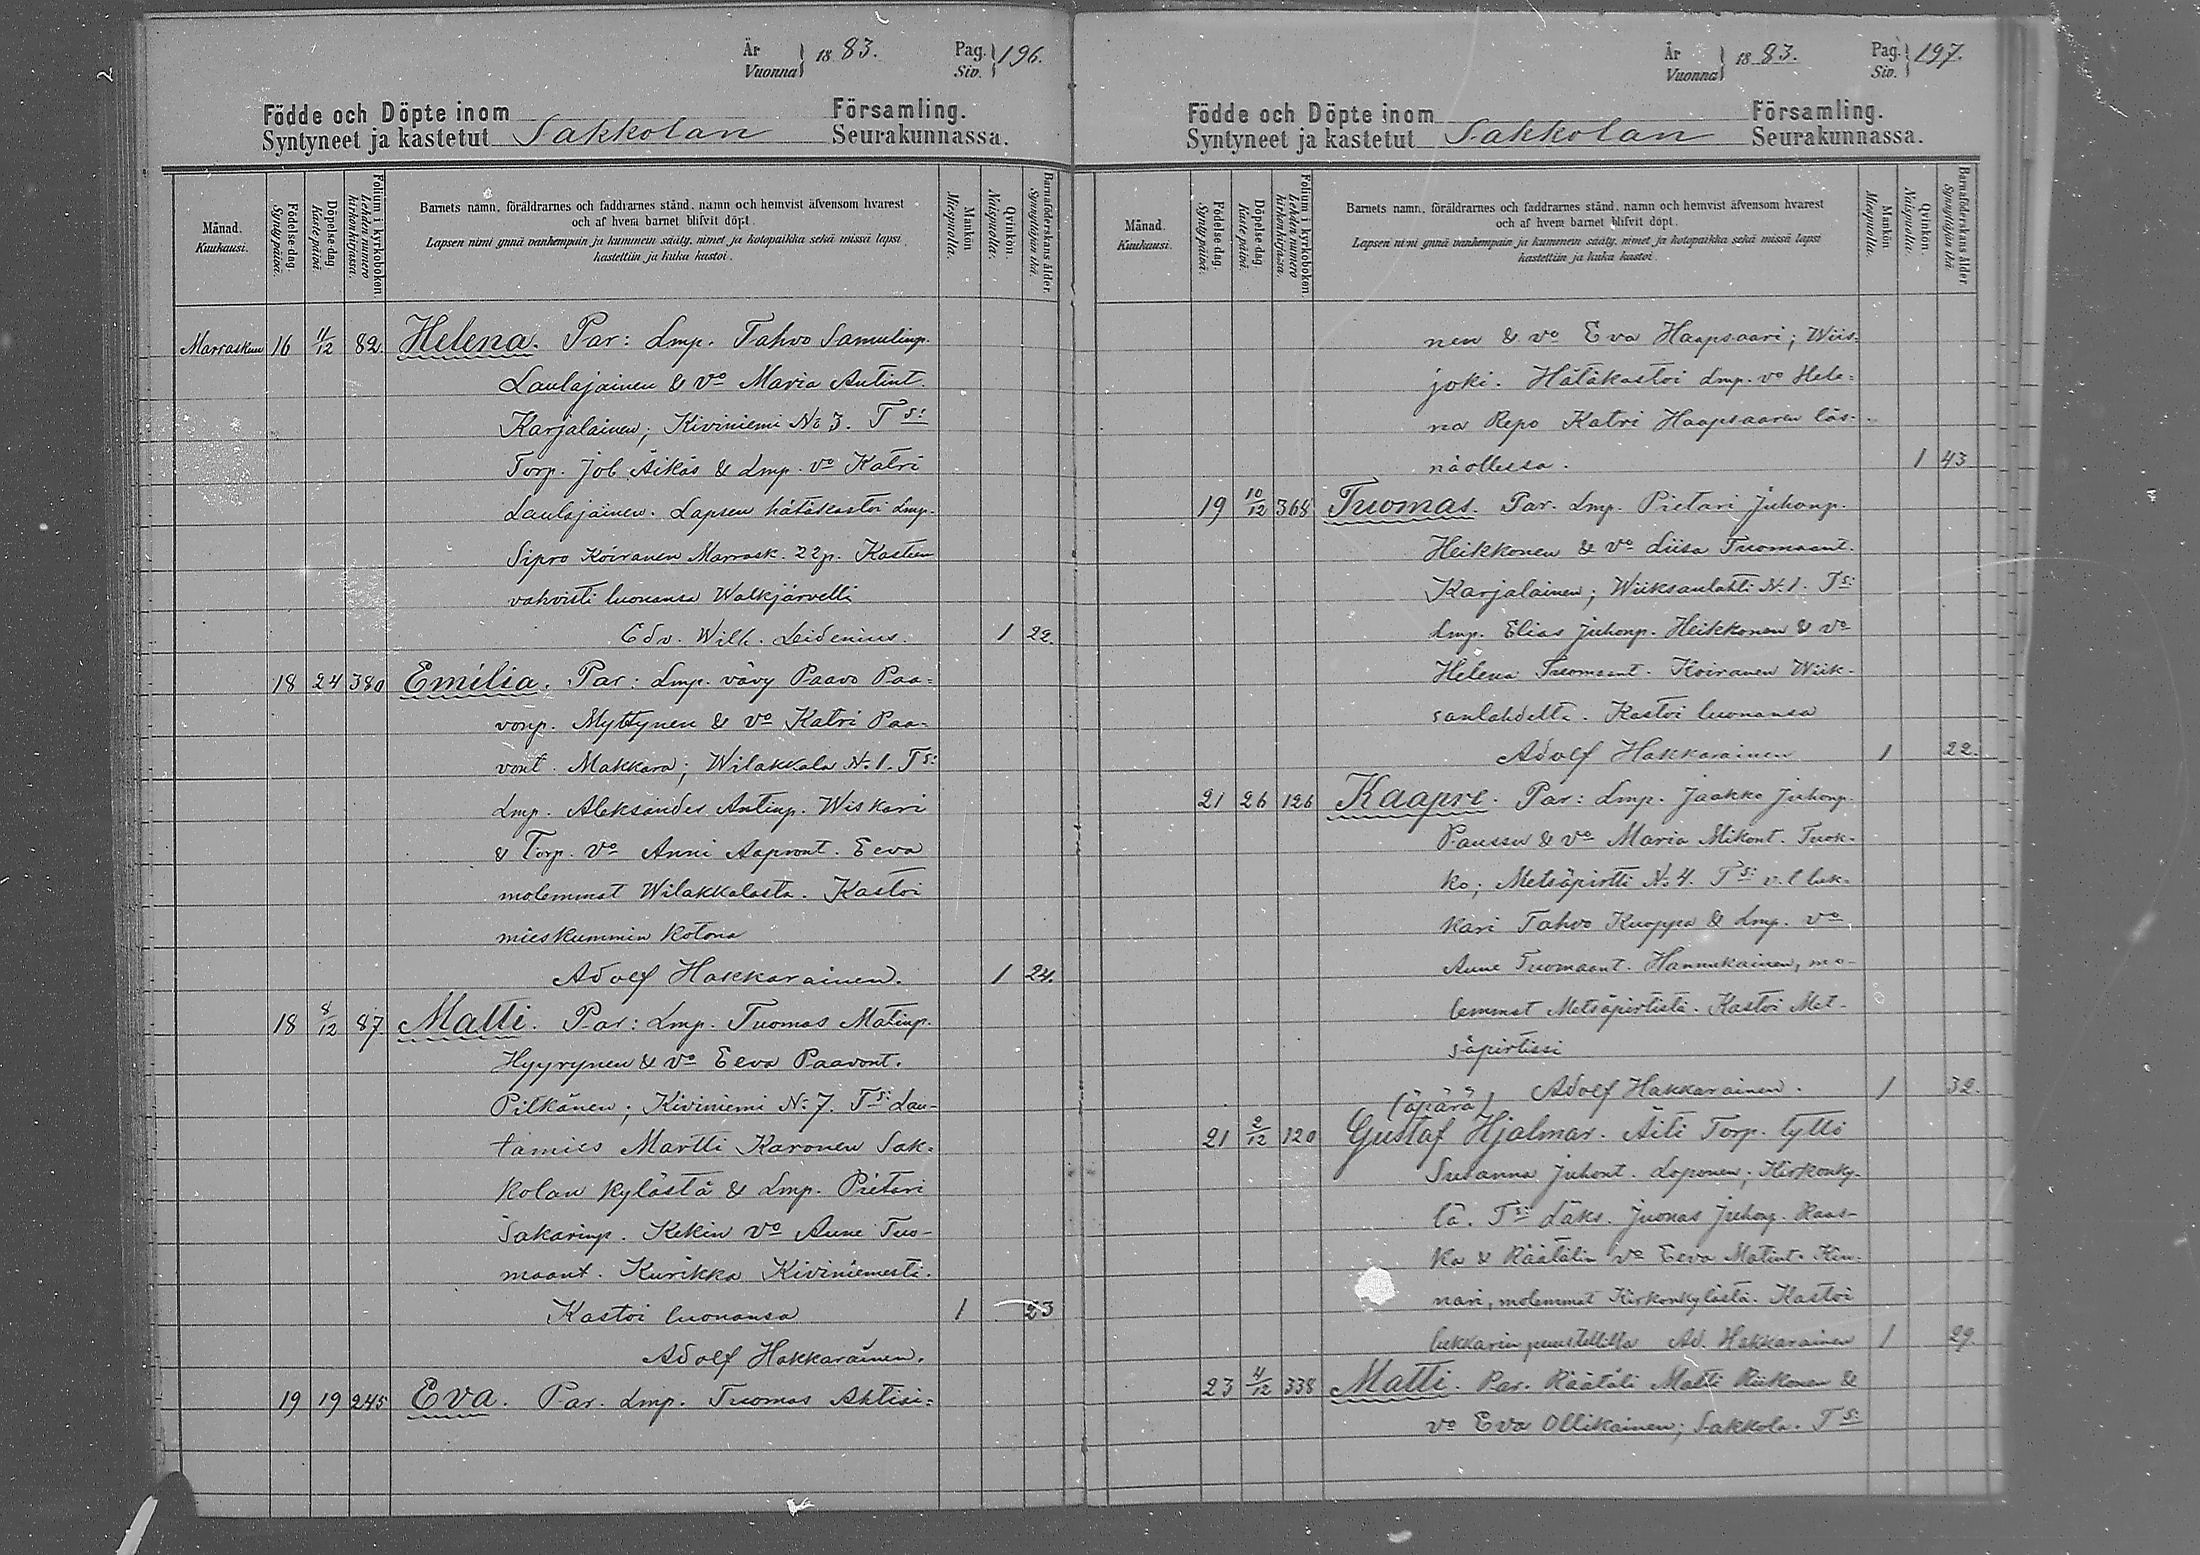 År
Vuonna } 1883. Pag.
Siv. } 196.
Födde och Döpte inom Församling.
Syntyneet ja kastetut Sakkolan Seurakunnassa.
Månad.
Kuukausi.
Födelse-dag.
Syntypäivä.
Döpelse-dag.
Kastepäivä.
Folium i kyrkoboken.
Lehden numero kirkonkirjassa.
Barnets namn, föräldrarnes och faddrarnes stånd, namn och hemvist äfvensom hvarest
och af hvem barnet blifvit döpt.
Lapsen nimi ynnä vanhempain ja kummein sääty, nimet ja kotopaikka sekä missä lapsi
kastettiin ja kuka kastoi.
Mankön.
Miespuolia.
Qvinkön.
Naispuolia.
Barnaföderskans ålder.
Synnyttäjän ikä.
Marraskuu 16 11/12 82. Helena. Par: Lmp. Tahvo Samulinp.
Laulajainen & vo Maria Antint.
Karjalainen; Kiviniemi No 3. Ts:
Torp. Job Äikäs & Lmp. vo Katri
Laulajainen. Lapsen hätäkastoi Lmp.
Sipro Koiranen Marrask. 22 p. Kasteen
vahvisti luonansa Walkjärvellä
Edv. Wilh. Leidenius. 1 22.
18 24 380 Emilia. Par: Lmp. vävy Paavo Paa-
vonp. Myttynen & vo Katri Paa-
vont. Makkara; Wilakkala No. 1. Ts:
Lmp. Aleksander Antinp. Wiskari
& Torp. vo Anni Aapront. Eeva
molemmat Wilakkalasta. Kastoi
mieskummin kotona
Adolf Hakkarainen. 1 24.
18 8/12 87 Matti. Par: Lmp. Tuomas Matinp.
Hyyrynen & vo Eeva Paavont.
Pitkänen; Kiviniemi No: 7. Ts: Lau-
tamies Martti Karonen Sak-
kolan kylästä & Lmp. Pietari
Sakarinp. Kekin vo Anne Tuo-
maant. Kurikka Kiviniemestä.
Kastoi luonansa 1 23
Adolf Hakkarainen.
19 19 245 Eva. Par. Lmp. Tuomas Ahtisi-
År
Vuonna } 1883. Pag.
Siv. } 197.
Födde och Döpte inom Församling.
Syntyneet ja kastetut Sakkolan Seurakunnassa.
Månad.
Kuukausi.
Födelse-dag.
Syntypäivä.
Döpelse-dag.
Kastepäivä.
Folium i kyrkoboken.
Lehden numero kirkonkirjassa.
Barnets namn, föräldrarnes och faddrarnes stånd, namn och hemvist äfvensom hvarest
och af hvem barnet blifvit döpt.
Lapsen nimi ynnä vanhempain ja kummein sääty, nimet ja kotopaikka sekä missä lapsi
kastettiin ja kuka kastoi.
Mankön.
Miespuolia.
Qvinkön.
Naispuolia.
Barnaföderskans ålder.
Synnyttäjän ikä.
nen & vo Eva Haapsaari; Wiis-
joki. Hätäkastoi Lmp. vo Hele-
na Repo Katri Haapsaaren läs-
näollessa. 1 43
19 10/12 368 Tuomas. Par. Lmp. Pietari Juhonp.
Heikkonen & vo Liisa Tuomaant.
Karjalainen; Wiiksanlahti N: 1. Ts:
Lmp. Elias Juhonp. Heikkonen & vo
Helena Tuomaant. Koiranen Wiik-
sanlahdelta. Kastoi luonansa
Adolf Hakkarainen 1 22.
21 26 126 Kaapre. Par: Lmp. Jaakko Juhonp.
Paussu & vo Maria Mikont. Tuok-
ko; Metsäpirtti No 4. Ts: v. l luk-
kari Tahvo Kuoppa & Lmp. vo
Anne Tuomaant. Hannukainen, mo-
lemmat Metsäpirtistä. Kastoi Met-
säpirtissä
Adolf Hakkarainen. 1 32.
(äpärä)
21 2/12 120 Gustaf Hjalmar. Äiti Torp. tyttö
Susanna Juhont. Loponen; Kirkonky-
lä. Ts: Läks. Juonas Juhonp. Raas-
ka & Räätälin vo Eeva Matint. Kin-
nari, molemmat Kirkonkylästä. Kastoi
lukkarin puustellilla Ad. Hakkarainen 1 29.
23 4/12 338 Matti. Par. Räätäli Matti Riikonen &
vo Eva Ollikainen; Sakkola. Ts: